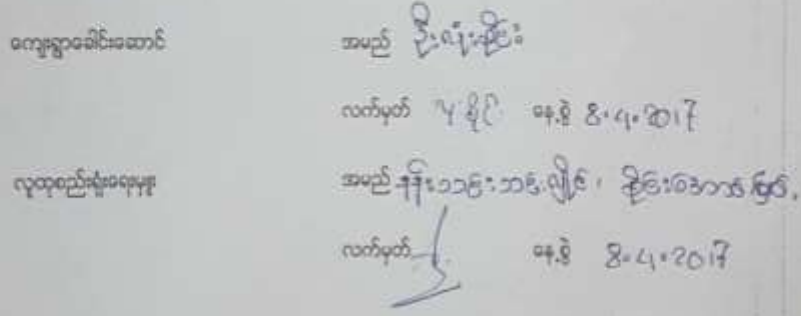 ကျေးရွာခေါင်းဆောင် အမည် ဦးလုံးခိုင်း
လက်မှတ် နေ့စွဲ 8.4.2017
လူထုစည်းရုံးရေးမှူး အမည် နန်း စိုင်းအောင်
လက်မှတ် နေ့စွဲ 8.4.2017